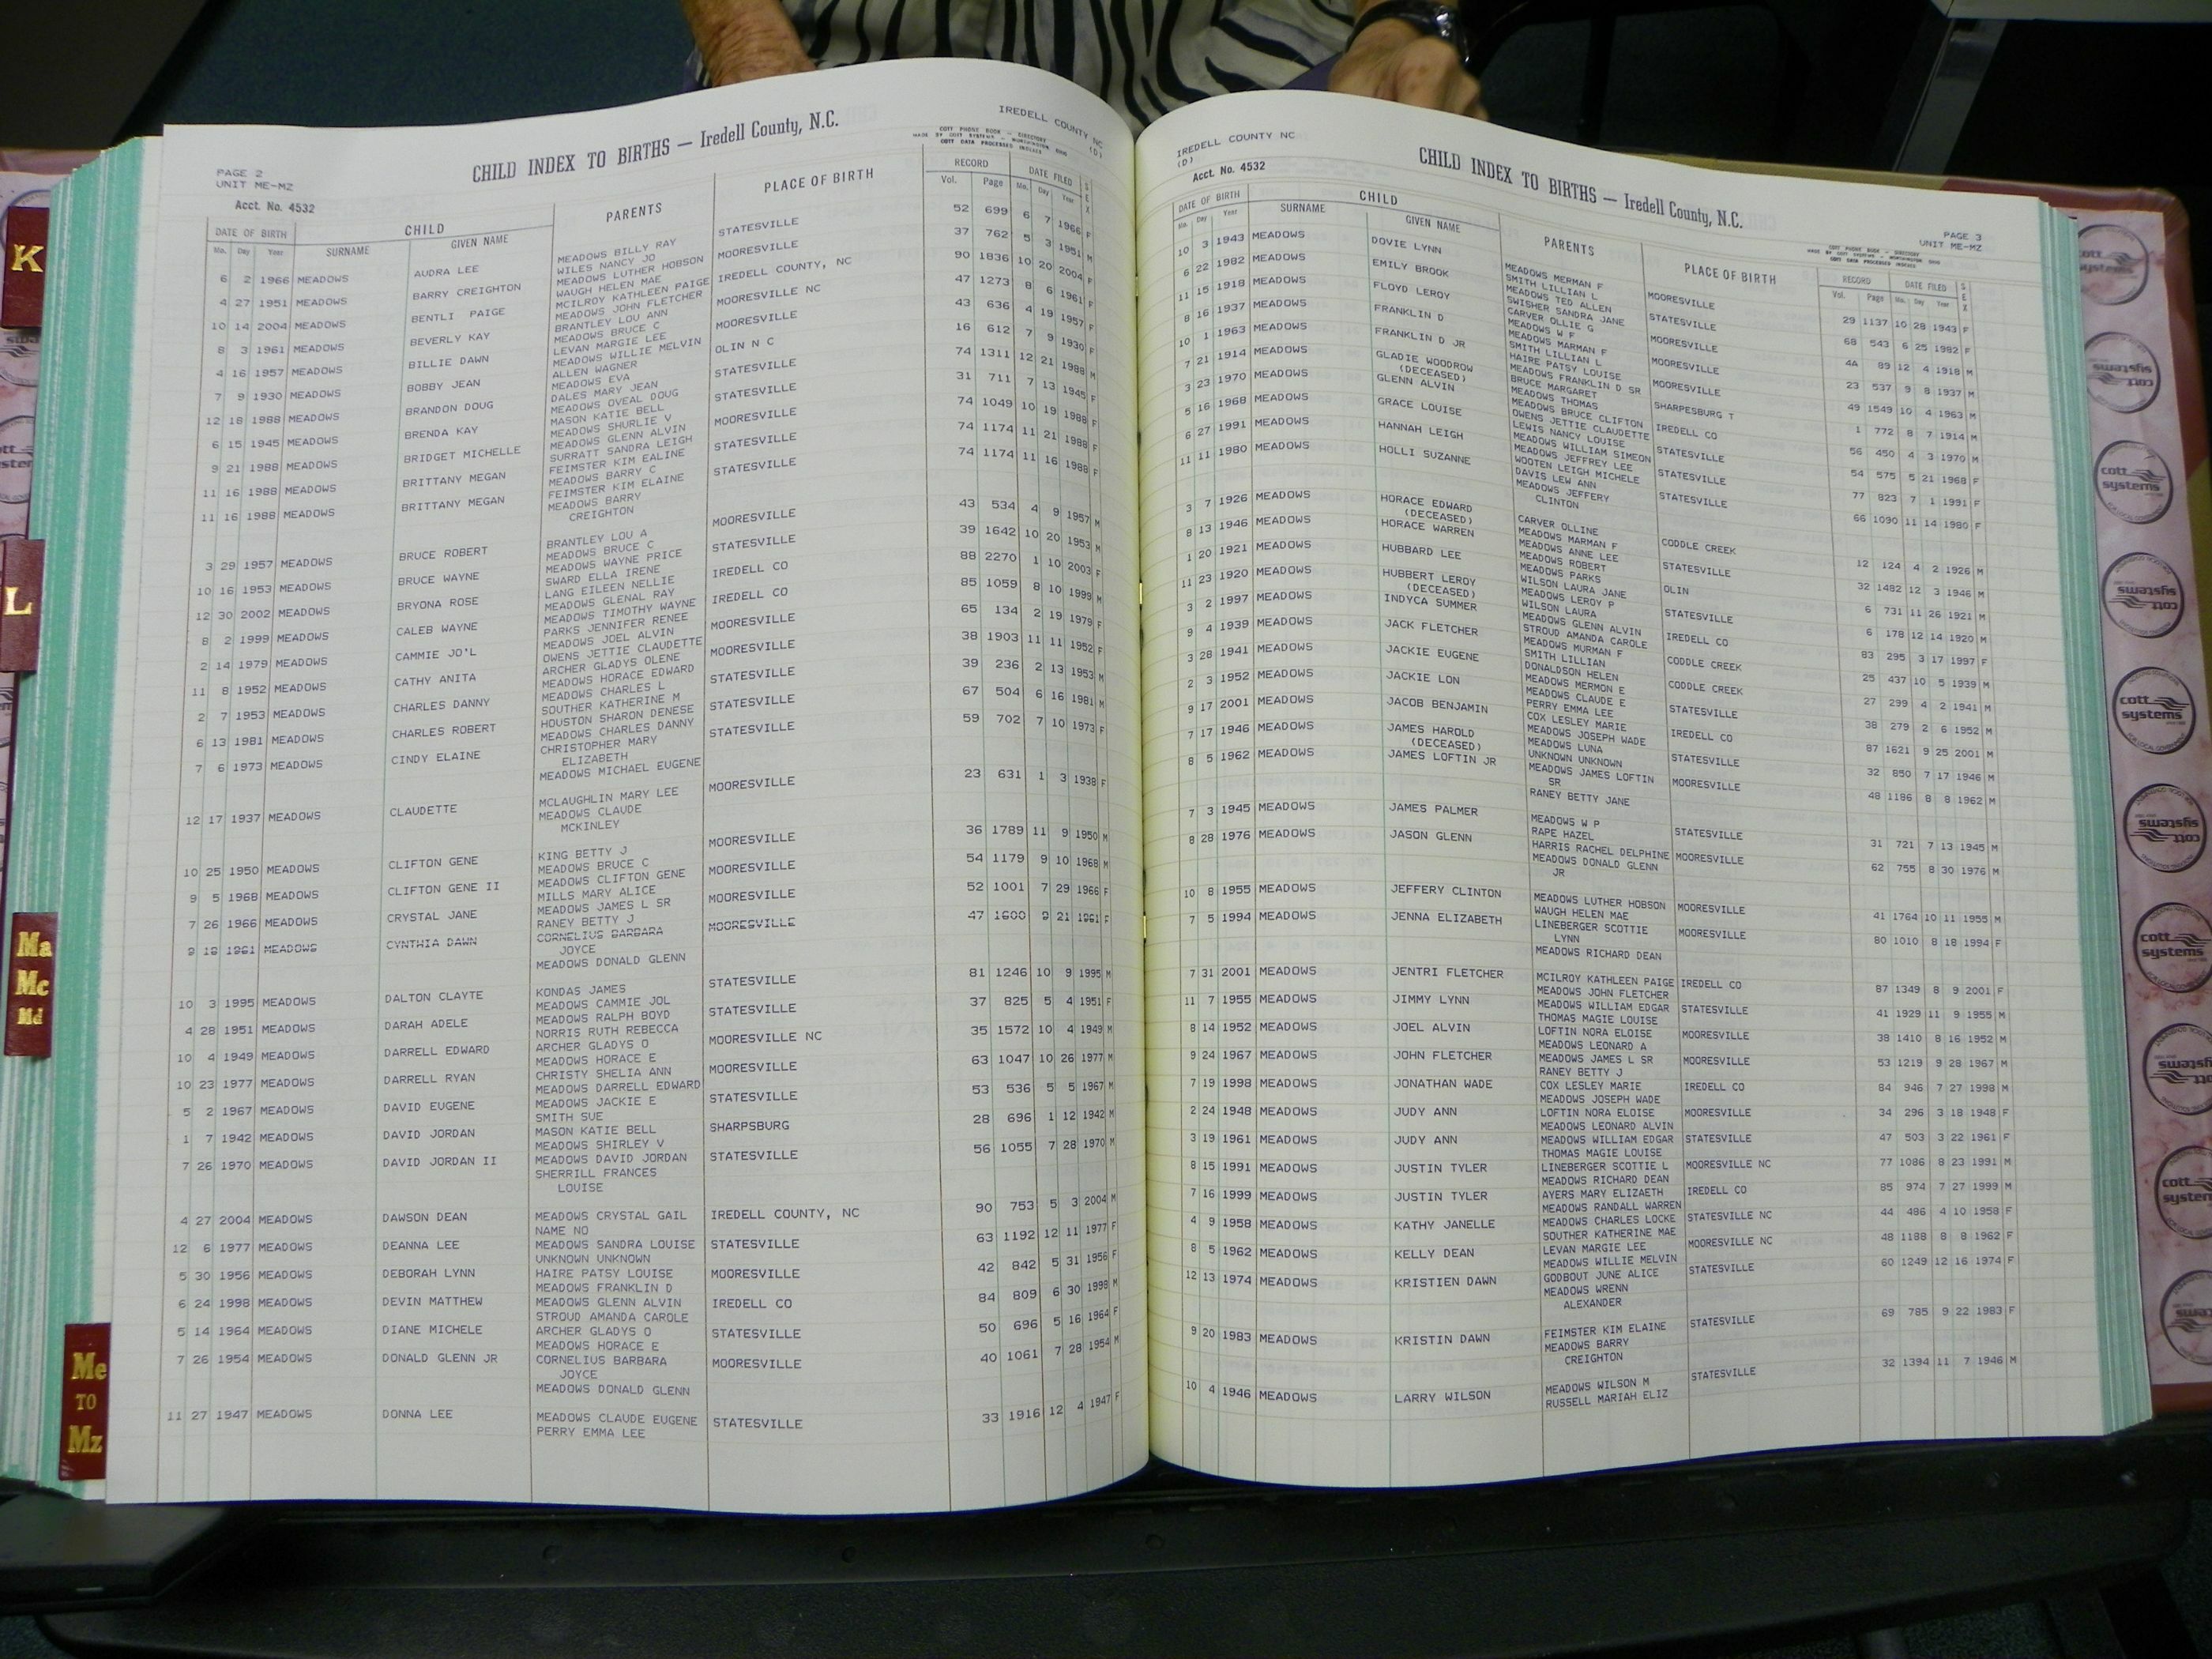 K
L
Ma
Mc
Md
Me
TO
Mz
PAGE 2
UNIT ME-MZ
Acct. No. 4532
CHILD INDEX TO BIRTHS — Iredell County, N.C.
IREDELL COUNTY NC
(D)
COTT PHONE BOOK - DIRECTORY
MADE BY COTT SYSTEMS - WORTHINGTON OHIO
COTT DATA PROCESSED INDEXES
DATE OF BIRTH CHILD PARENTS PLACE OF BIRTH RECORD DATE FILED SEX
Mo. Day Year SURNAME GIVEN NAME Vol. Page Mo. Day Year
6 2 1966 MEADOWS AUDRA LEE MEADOWS BILLY RAY STATESVILLE 52 699 6 7 1966 F
WILES NANCY JO
4 27 1951 MEADOWS BARRY CREIGHTON MEADOWS LUTHER HOBSON MOORESVILLE 37 762 5 3 1951 M
WAUGH HELEN MAE
10 14 2004 MEADOWS BENTLI PAIGE MCILROY KATHLEEN PAIGE IREDELL COUNTY, NC 90 1836 10 20 2004 F
MEADOWS JOHN FLETCHER
8 3 1961 MEADOWS BEVERLY KAY BRANTLEY LOU ANN MOORESVILLE NC 47 1273 8 6 1961 F
MEADOWS BRUCE C
4 16 1957 MEADOWS BILLIE DAWN LEVAN MARGIE LEE MOORESVILLE 43 636 4 19 1957 F
MEADOWS WILLIE MELVIN
7 9 1930 MEADOWS BOBBY JEAN ALLEN WAGNER OLIN N C 16 612 7 9 1930 F
MEADOWS EVA
12 18 1988 MEADOWS BRANDON DOUG DALES MARY JEAN STATESVILLE 74 1311 12 21 1988 M
MEADOWS OVEAL DOUG
6 15 1945 MEADOWS BRENDA KAY MASON KATIE BELL STATESVILLE 31 711 7 13 1945 F
MEADOWS SHURLIE V
9 21 1988 MEADOWS BRIDGET MICHELLE MEADOWS GLENN ALVIN MOORESVILLE 74 1049 10 19 1988 F
SURRATT SANDRA LEIGH
11 16 1988 MEADOWS BRITTANY MEGAN FEIMSTER KIM EALINE STATESVILLE 74 1174 11 21 1988 F
MEADOWS BARRY C
11 16 1988 MEADOWS BRITTANY MEGAN FEIMSTER KIM ELAINE STATESVILLE 74 1174 11 16 1988 F
MEADOWS BARRY
CREIGHTON
3 29 1957 MEADOWS BRUCE ROBERT BRANTLEY LOU A MOORESVILLE 43 534 4 9 1957 M
MEADOWS BRUCE C
10 16 1953 MEADOWS BRUCE WAYNE MEADOWS WAYNE PRICE STATESVILLE 39 1642 10 20 1953 M
SWARD ELLA IRENE
12 30 2002 MEADOWS BRYONA ROSE LANG EILEEN NELLIE IREDELL CO 88 2270 1 10 2003 F
MEADOWS GLENAL RAY
8 2 1999 MEADOWS CALEB WAYNE MEADOWS TIMOTHY WAYNE IREDELL CO 85 1059 8 10 1999 M
PARKS JENNIFER RENEE
2 14 1979 MEADOWS CAMMIE JO'L MEADOWS JOEL ALVIN MOORESVILLE 65 134 2 19 1979 F
OWENS JETTIE CLAUDETTE
11 8 1952 MEADOWS CATHY ANITA ARCHER GLADYS OLENE MOORESVILLE 38 1903 11 11 1952 F
MEADOWS HORACE EDWARD
2 7 1953 MEADOWS CHARLES DANNY MEADOWS CHARLES L STATESVILLE 39 236 2 13 1953 M
SOUTHER KATHERINE M
6 13 1981 MEADOWS CHARLES ROBERT HOUSTON SHARON DENESE STATESVILLE 67 504 6 16 1981 M
MEADOWS CHARLES DANNY
7 6 1973 MEADOWS CINDY ELAINE CHRISTOPHER MARY STATESVILLE 59 702 7 10 1973 F
ELIZABETH
MEADOWS MICHAEL EUGENE
12 17 1937 MEADOWS CLAUDETTE MCLAUGHLIN MARY LEE MOORESVILLE 23 631 1 3 1938 F
MEADOWS CLAUDE
MCKINLEY
10 25 1950 MEADOWS CLIFTON GENE KING BETTY J MOORESVILLE 36 1789 11 9 1950 M
MEADOWS BRUCE C
9 5 1968 MEADOWS CLIFTON GENE II MEADOWS CLIFTON GENE MOORESVILLE 54 1179 9 10 1968 M
MILLS MARY ALICE
7 26 1966 MEADOWS CRYSTAL JANE MEADOWS JAMES L SR MOORESVILLE 52 1001 7 29 1966 F
RANEY BETTY J
9 18 1961 MEADOWS CYNTHIA DAWN CORNELIUS BARBARA MOORESVILLE 47 1600 9 21 1961 F
JOYCE
MEADOWS DONALD GLENN
10 3 1995 MEADOWS DALTON CLAYTE KONDAS JAMES STATESVILLE 81 1246 10 9 1995 M
MEADOWS CAMMIE JOL
4 28 1951 MEADOWS DARAH ADELE MEADOWS RALPH BOYD STATESVILLE 37 825 5 4 1951 F
NORRIS RUTH REBECCA
10 4 1949 MEADOWS DARRELL EDWARD ARCHER GLADYS O MOORESVILLE NC 35 1572 10 4 1949 M
MEADOWS HORACE E
10 23 1977 MEADOWS DARRELL RYAN CHRISTY SHELIA ANN MOORESVILLE 63 1047 10 26 1977 M
MEADOWS DARRELL EDWARD
5 2 1967 MEADOWS DAVID EUGENE MEADOWS JACKIE E STATESVILLE 53 536 5 5 1967 M
SMITH SUE
1 7 1942 MEADOWS DAVID JORDAN MASON KATIE BELL SHARPSBURG 28 696 1 12 1942 M
MEADOWS SHIRLEY V
7 26 1970 MEADOWS DAVID JORDAN II MEADOWS DAVID JORDAN STATESVILLE 56 1055 7 28 1970 M
SHERRILL FRANCES
LOUISE
4 27 2004 MEADOWS DAWSON DEAN MEADOWS CRYSTAL GAIL IREDELL COUNTY, NC 90 753 5 3 2004 M
NAME NO
12 6 1977 MEADOWS DEANNA LEE MEADOWS SANDRA LOUISE STATESVILLE 63 1192 12 11 1977 F
UNKNOWN UNKNOWN
5 30 1956 MEADOWS DEBORAH LYNN HAIRE PATSY LOUISE MOORESVILLE 42 842 5 31 1956 F
MEADOWS FRANKLIN D
6 24 1998 MEADOWS DEVIN MATTHEW MEADOWS GLENN ALVIN IREDELL CO 84 809 6 30 1998 M
STROUD AMANDA CAROLE
5 14 1964 MEADOWS DIANE MICHELE ARCHER GLADYS O STATESVILLE 50 696 5 16 1964 F
MEADOWS HORACE E
7 26 1954 MEADOWS DONALD GLENN JR CORNELIUS BARBARA MOORESVILLE 40 1061 7 28 1954 M
JOYCE
MEADOWS DONALD GLENN
11 27 1947 MEADOWS DONNA LEE MEADOWS CLAUDE EUGENE STATESVILLE 33 1916 12 4 1947 F
PERRY EMMA LEE
IREDELL COUNTY NC
(D)
Acct. No. 4532
CHILD INDEX TO BIRTHS — Iredell County, N.C.
PAGE 3
UNIT ME-MZ
COTT PHONE BOOK - DIRECTORY
MADE BY COTT SYSTEMS - WORTHINGTON OHIO
COTT DATA PROCESSED INDEXES
DATE OF BIRTH CHILD PARENTS PLACE OF BIRTH RECORD DATE FILED SEX
Mo. Day Year SURNAME GIVEN NAME Vol. Page Mo. Day Year
10 3 1943 MEADOWS DOVIE LYNN MEADOWS MERMAN F MOORESVILLE 29 1137 10 28 1943 F
SMITH LILLIAN L
6 22 1982 MEADOWS EMILY BROOK MEADOWS TED ALLEN STATESVILLE 68 543 6 25 1982 F
SWISHER SANDRA JANE
11 15 1918 MEADOWS FLOYD LEROY CARVER OLLIE G MOORESVILLE 4A 89 12 4 1918 M
MEADOWS W F
8 16 1937 MEADOWS FRANKLIN D MEADOWS MARMAN F MOORESVILLE 23 537 9 8 1937 M
SMITH LILLIAN L
10 1 1963 MEADOWS FRANKLIN D JR HAIRE PATSY LOUISE SHARPESBURG T 49 1549 10 4 1963 M
MEADOWS FRANKLIN D SR
7 21 1914 MEADOWS GLADIE WOODROW BRUCE MARGARET IREDELL CO 1 772 8 7 1914 M
(DECEASED) MEADOWS THOMAS
3 23 1970 MEADOWS GLENN ALVIN MEADOWS BRUCE CLIFTON STATESVILLE 56 450 4 3 1970 M
OWENS JETTIE CLAUDETTE
5 16 1968 MEADOWS GRACE LOUISE LEWIS NANCY LOUISE STATESVILLE 54 575 5 21 1968 F
MEADOWS WILLIAM SIMEON
6 27 1991 MEADOWS HANNAH LEIGH MEADOWS JEFFREY LEE STATESVILLE 77 823 7 1 1991 F
WOOTEN LEIGH MICHELE
11 11 1980 MEADOWS HOLLI SUZANNE DAVIS LEW ANN 66 1090 11 14 1980 F
MEADOWS JEFFERY
CLINTON
3 7 1926 MEADOWS HORACE EDWARD CARVER OLLINE CODDLE CREEK 12 124 4 2 1926 M
(DECEASED) MEADOWS MARMAN F
8 13 1946 MEADOWS HORACE WARREN MEADOWS ANNE LEE STATESVILLE 32 1482 12 3 1946 M
MEADOWS ROBERT
1 20 1921 MEADOWS HUBBARD LEE MEADOWS PARKS OLIN 6 731 11 26 1921 M
WILSON LAURA JANE
11 23 1920 MEADOWS HUBBERT LEROY MEADOWS LEROY P STATESVILLE 6 178 12 14 1920 M
(DECEASED) WILSON LAURA
3 2 1997 MEADOWS INDYCA SUMMER MEADOWS GLENN ALVIN IREDELL CO 83 295 3 17 1997 F
STROUD AMANDA CAROLE
9 4 1939 MEADOWS JACK FLETCHER MEADOWS MURMAN F CODDLE CREEK 25 437 10 5 1939 M
SMITH LILLIAN
3 28 1941 MEADOWS JACKIE EUGENE DONALDSON HELEN CODDLE CREEK 27 299 4 2 1941 M
MEADOWS MERMON E
2 3 1952 MEADOWS JACKIE LON MEADOWS CLAUDE E STATESVILLE 38 279 2 6 1952 M
PERRY EMMA LEE
9 17 2001 MEADOWS JACOB BENJAMIN COX LESLEY MARIE IREDELL CO 87 1621 9 25 2001 M
MEADOWS JOSEPH WADE
7 17 1946 MEADOWS JAMES HAROLD MEADOWS LUNA STATESVILLE 32 850 7 17 1946 M
(DECEASED) UNKNOWN UNKNOWN
8 5 1962 MEADOWS JAMES LOFTIN JR MEADOWS JAMES LOFTIN MOORESVILLE 48 1186 8 8 1962 M
SR
RANEY BETTY JANE
7 3 1945 MEADOWS JAMES PALMER MEADOWS W P STATESVILLE 31 721 7 13 1945 M
RAPE HAZEL
8 28 1976 MEADOWS JASON GLENN HARRIS RACHEL DELPHINE MOORESVILLE 62 755 8 30 1976 M
MEADOWS DONALD GLENN
JR
10 8 1955 MEADOWS JEFFERY CLINTON MEADOWS LUTHER HOBSON MOORESVILLE 41 1764 10 11 1955 M
WAUGH HELEN MAE
7 5 1994 MEADOWS JENNA ELIZABETH LINEBERGER SCOTTIE MOORESVILLE 80 1010 8 18 1994 F
LYNN
MEADOWS RICHARD DEAN
7 31 2001 MEADOWS JENTRI FLETCHER MCILROY KATHLEEN PAIGE IREDELL CO 87 1349 8 9 2001 F
MEADOWS JOHN FLETCHER
11 7 1955 MEADOWS JIMMY LYNN MEADOWS WILLIAM EDGAR STATESVILLE 41 1929 11 9 1955 M
THOMAS MAGIE LOUISE
8 14 1952 MEADOWS JOEL ALVIN LOFTIN NORA ELOISE MOORESVILLE 38 1410 8 16 1952 M
MEADOWS LEONARD A
9 24 1967 MEADOWS JOHN FLETCHER MEADOWS JAMES L SR MOORESVILLE 53 1219 9 28 1967 M
RANEY BETTY J
7 19 1998 MEADOWS JONATHAN WADE COX LESLEY MARIE IREDELL CO 84 946 7 27 1998 M
MEADOWS JOSEPH WADE
2 24 1948 MEADOWS JUDY ANN LOFTIN NORA ELOISE MOORESVILLE 34 296 3 18 1948 F
MEADOWS LEONARD ALVIN
3 19 1961 MEADOWS JUDY ANN MEADOWS WILLIAM EDGAR STATESVILLE 47 503 3 22 1961 F
THOMAS MAGIE LOUISE
8 15 1991 MEADOWS JUSTIN TYLER LINEBERGER SCOTTIE L MOORESVILLE NC 77 1086 8 23 1991 M
MEADOWS RICHARD DEAN
7 16 1999 MEADOWS JUSTIN TYLER AYERS MARY ELIZAETH IREDELL CO 85 974 7 27 1999 M
MEADOWS RANDALL WARREN
4 9 1958 MEADOWS KATHY JANELLE MEADOWS CHARLES LOCKE STATESVILLE NC 44 486 4 10 1958 F
SOUTHER KATHERINE MAE
8 5 1962 MEADOWS KELLY DEAN LEVAN MARGIE LEE MOORESVILLE NC 48 1188 8 8 1962 F
MEADOWS WILLIE MELVIN
12 13 1974 MEADOWS KRISTIEN DAWN GODBOUT JUNE ALICE STATESVILLE 60 1249 12 16 1974 F
MEADOWS WRENN
ALEXANDER
9 20 1983 MEADOWS KRISTIN DAWN FEIMSTER KIM ELAINE STATESVILLE 69 785 9 22 1983 F
MEADOWS BARRY
CREIGHTON
10 4 1946 MEADOWS LARRY WILSON MEADOWS WILSON M STATESVILLE 32 1394 11 7 1946 M
RUSSELL MARIAH ELIZ
cott
systems
cott
systems
cott
systems
cott
systems
cott
systems